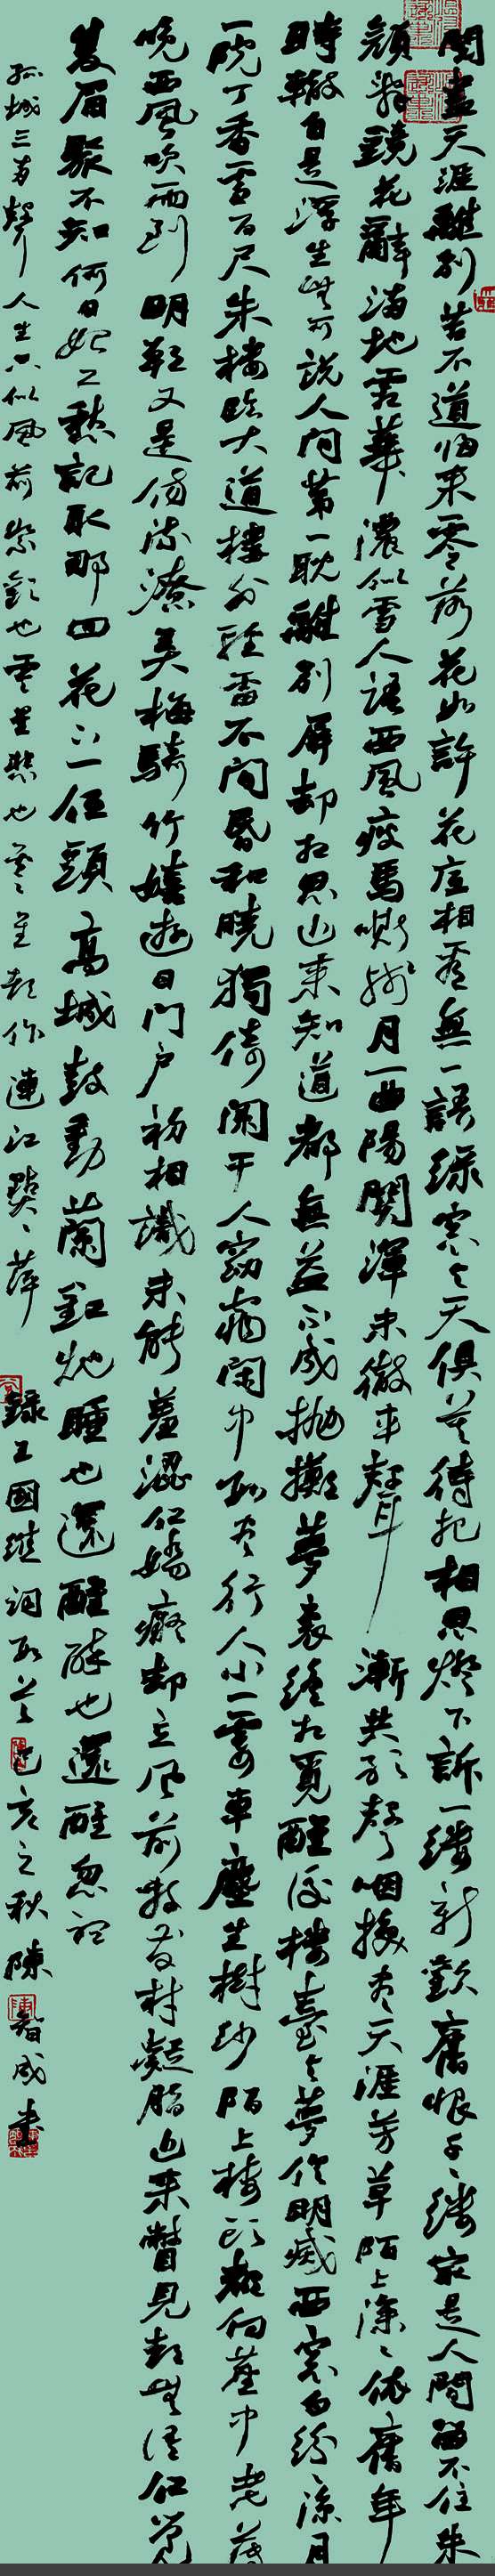 閱盡天涯離別苦不道归来零落花如許花底相看無一語綠窗与天俱莫待把相思燈下訴一縷新歡舊恨千千縷最是人間留不住朱
顏辭鏡花辭滿地霜華濃似雪人語西風瘦馬嘶殘月一曲陽關渾未徹車聲漸共歌聲咽換盡天涯芳草陌上深深依舊年
時轍自是浮生無可說人間第一耽離別屏却相思近来知道都無益不成抛擲夢裏終相覓醒後樓臺与夢俱明滅西窗白紛紛涼月
一院丁香雪百尺朱樓臨大道樓外輕雷不間昏和曉獨倚闌干人窈窕閒中數盡行人小一霎車塵生樹杪陌上樓頭都向塵中老薄
晚西風吹雨到明朝又是傷流潦美梅騎竹嬉遊日門戶初相識未能羞澀但嬌癡却立風前散髮襯凝脂近来瞥見都無語但覺
雙眉聚不知何日始工愁記取那回花下一低頭高城鼓動蘭釭灺睡也還醒醉也還醒忽聽
孤城三兩聲人生只似風前絮歡也零星悲也零星都作連江點點萍錄王國維詞數首己亥之秋陳智成書